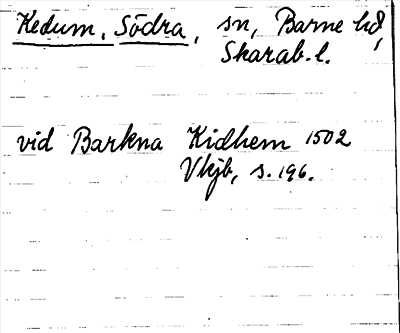 Kedum, Södra, sn, Barne hd,
Skarab. l.
vid Barkna Kidhem 1502
Vkjb, s. 196.